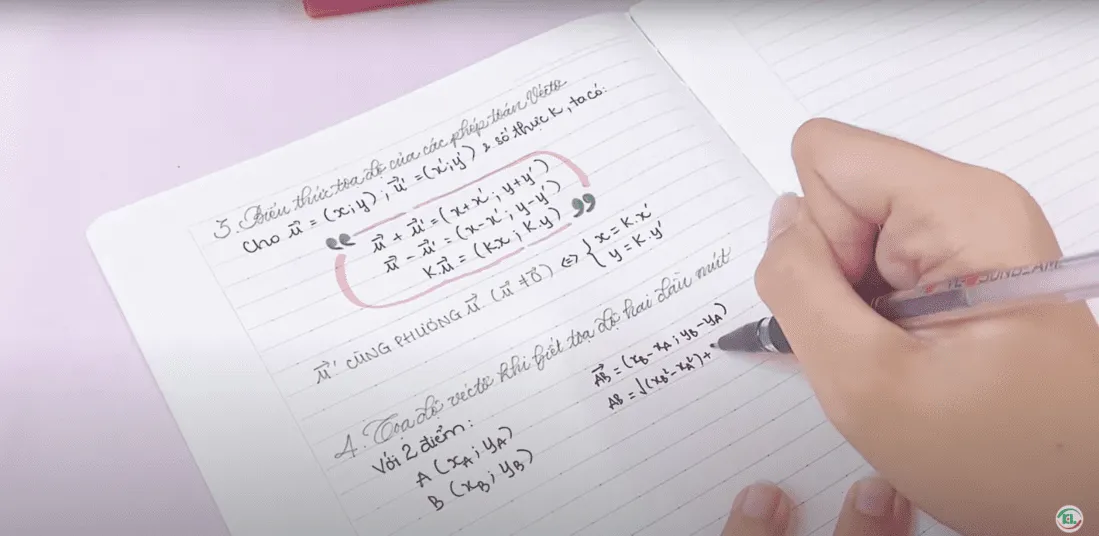 3. Biểu thức tọa độ của các phép toán Véctơ
Cho u⃗ = (x; y) ; u⃗' = (x'; y') & số thực k, ta có:
“ u⃗ + u⃗' = (x+x'; y+y')
u⃗ - u⃗' = (x-x'; y-y')
k.u⃗ = (kx; k.y) ”
u⃗' CÙNG PHƯƠNG u⃗ (u⃗ ≠ 0⃗) ⇔ { x = k.x'
y = k.y'
4. Tọa độ véctơ khi biết tọa độ hai đầu mút
Với 2 điểm:
A (xA; yA)
B (xB; yB)
AB⃗ = (xB - xA; yB - yA)
AB = √(xB² - xA²) +